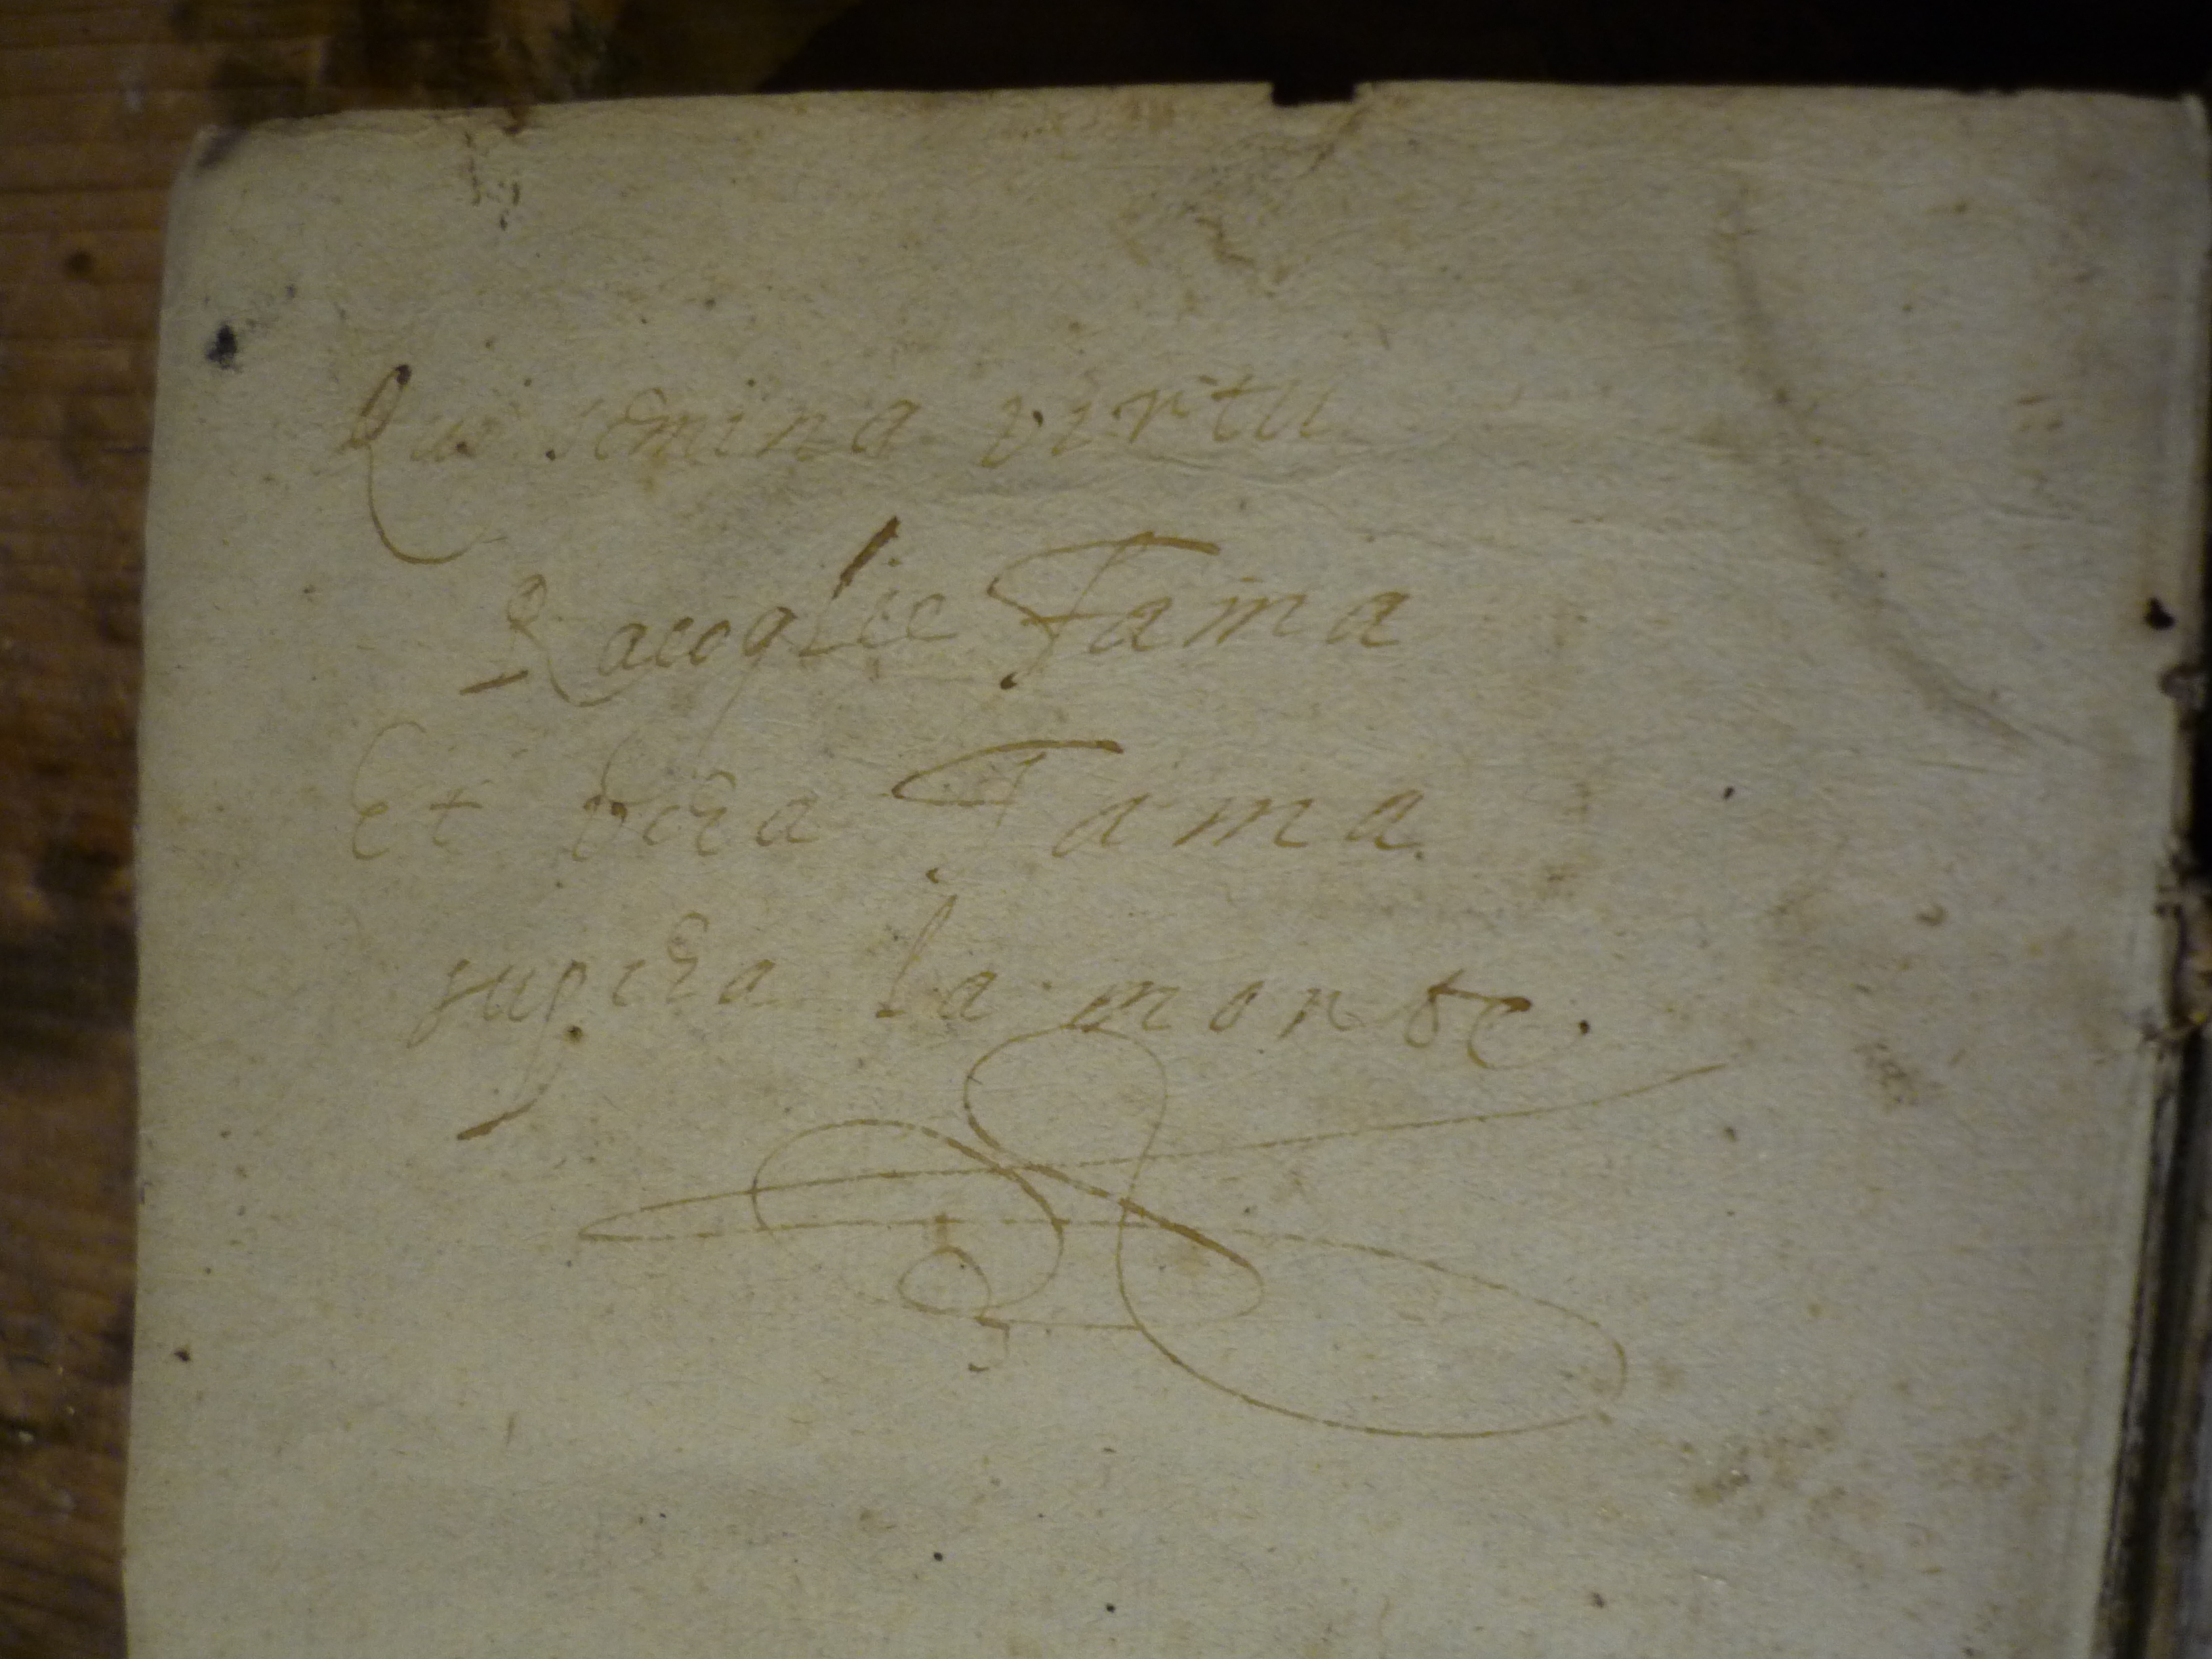 Qui semina virtu
Racoglie Fama
Et vera Fama
supera la morte.